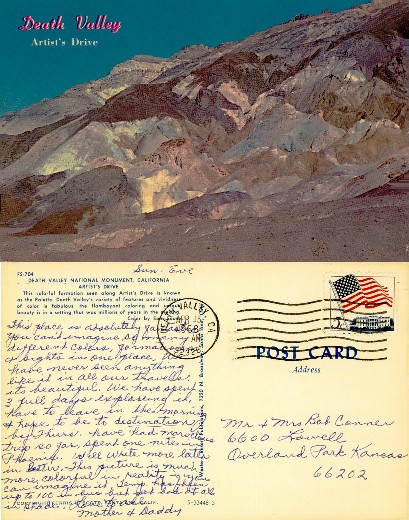 Death Valley
Artist's Drive
Sun. Eve
FS-704
DEATH VALLEY NATIONAL MONUMENT, CALIFORNIA
ARTIST'S DRIVE
This colorful formation seen along Artist's Drive is known
as the Palette Death Valley's variety of features and vividness
of color is fabulous the flamboyant coloring and
beauty is in a setting that was millions of years in the
Color by
DEATH VALLEY CA
1968
AM
92328
POST CARD
Address
This place is absolutely
You can't imagine so many
different colors, formations
& sights in one place. We
have never seen anything
like it in all our travels
its beautiful. We have spent
2 full days exploring it,
have to leave in the morning
& hope to be to destination
by Thurs. have had marvelous
trip so far, spent one nite in
Phoenix. Will write more later
in letter. This picture is much
more colorful in reality if you
can imagine it. Temp. has been
up to 100 in bus but not hot at all
in shade.
Mother & Daddy
Mr & Mrs Bob Conner
6600 Lowell
Overland Park Kansas
66202